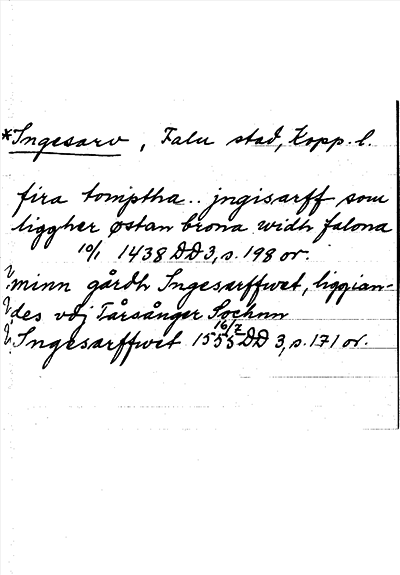 *Ingesarv, Falu stad, Kopp. l.
fira tomptha .. jngisarff som
liggher østan brona widh falona
10/1 1438 DD 3, s. 198 or.
? minn gårdh Ingesarffwet, liggian-
? des vdj Tårsånger Sochnn
? Ingesarffwet 16/7 1555 DD 3, s. 171 or.